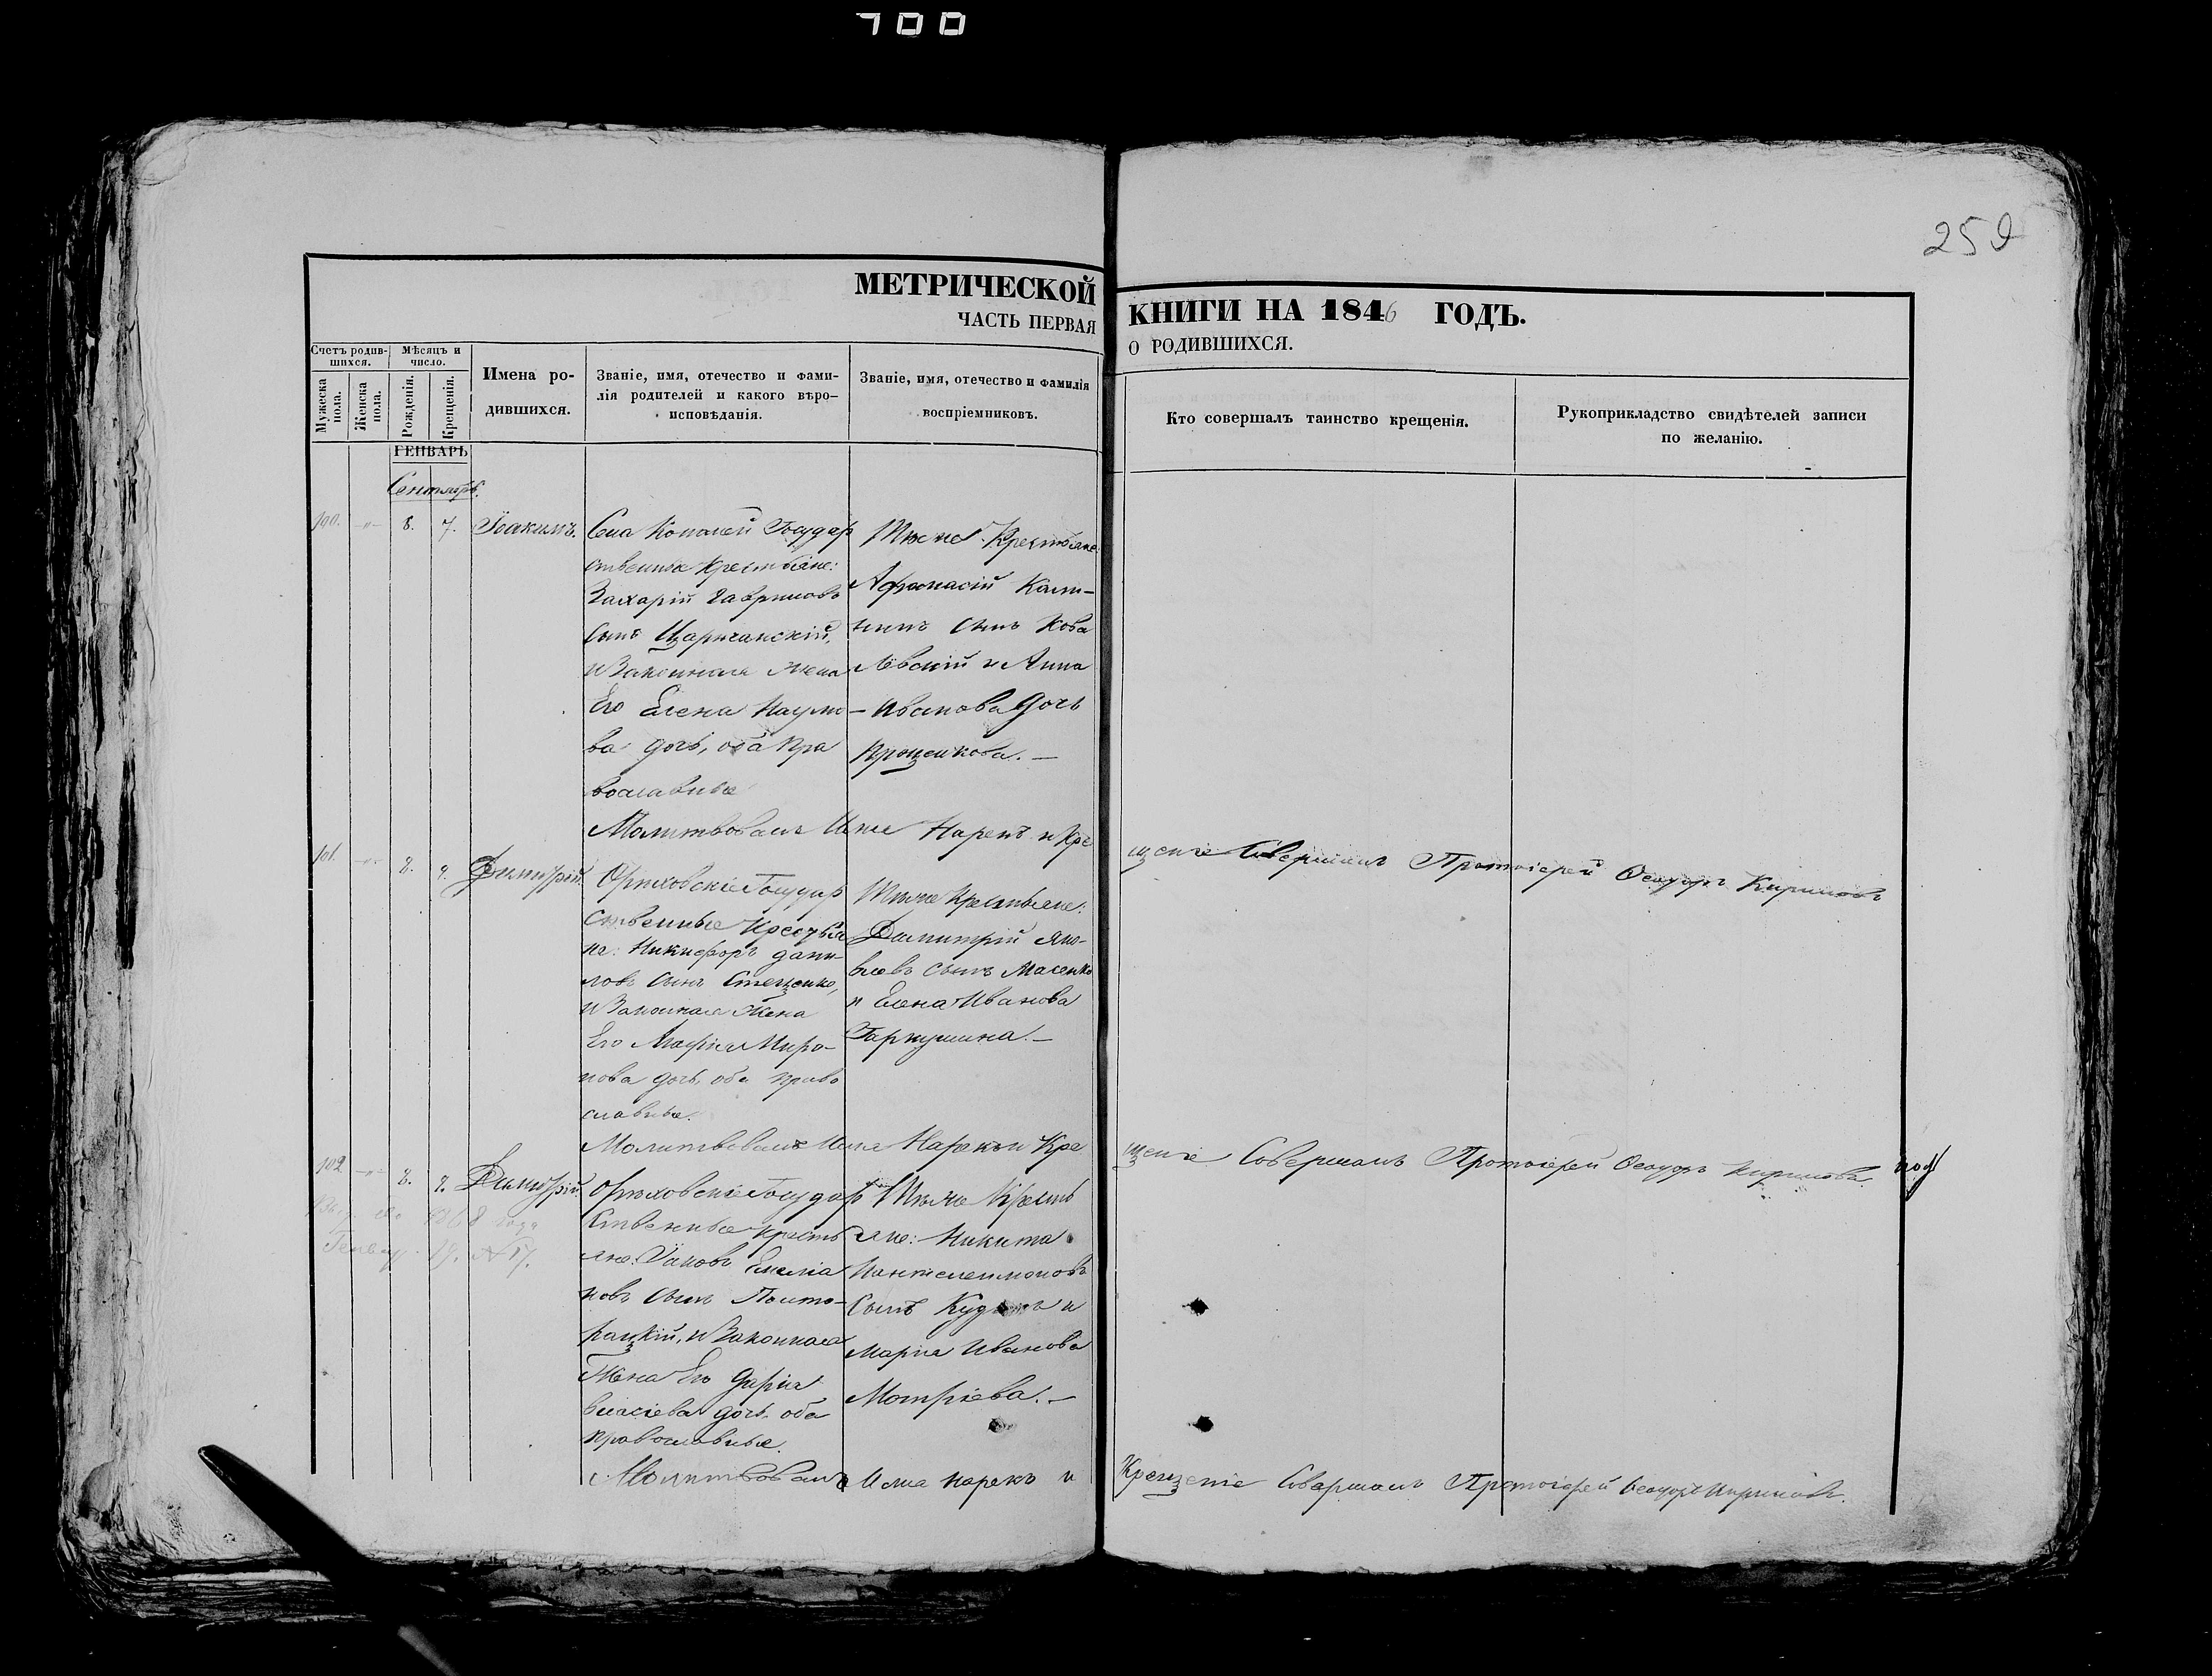 700
259
МЕТРИЧЕСКОЙ КНИГИ НА 1846 ГОДЪ.
ЧАСТЬ ПЕРВАЯ О РОДИВШИХСЯ.
Счетъ родив-
шихся.
Мужеска пола.
Женска пола.
Мѣсяцъ и
число.
Рожденія.
Крещенія.
Имена ро-
дившихся.
Званіе, имя, отечество и фами-
лія родителей и какого вѣро-
исповѣданія.
Званіе, имя, отечество и фамилія
воспріемниковъ.
Кто совершалъ таинство крещенія.
Рукоприкладство свидѣтелей записи
по желанію.
ГЕНВАРЬ
Сентябрь.
100. -"- 8. 7. Іоакимъ.
Села Копаней Государ
ственные крестьяне:
Захарій Гавриловъ
сынъ Царичанскій,
и Законная жена
Его Елена Наумо-
ва дочь, оба пра
вославные
Тѣже Крестьяне:
Афанасій Кали-
нинъ сынъ Кова
левскій и Анна
Иванова дочь
Проценкова. —
Молитвовалъ Имя Нарекъ и Кре
щеніе Совершилъ Протоіерей Ѳеодоръ Кириловъ
101. -"- 8. 9. Димитрій.
Орѣховскіе Государ
ственные Крестья
не: Никифоръ Дани-
ловъ сынъ Стеценко,
и Законная Жена
Его Марія Миро-
нова дочь, оба право
славные.
Тѣже Крестьяне:
Димитрій Яко-
влевъ сынъ Масенко
и Елена Иванова
Гаркушина. —
Молитвовалъ Имя Нарекъ и Кре
щеніе Совершалъ Протоіерей Ѳеодоръ Кириловъ.
102 -"- 8. 9. Димитрій.
1868 года
Генвар. 19. № 17.
Орѣховскіе Государ
ственные Кресть
яне: Іаковъ Емелiа
новъ сынъ Полто-
рацкій, и Законная
Жена Его Дарія
Власіева дочь, оба
православные.
Тѣже Кресть
яне: Никита
Пантелеимоновъ
сынъ и
Марія Иванова
Мотріева. —
Молитвовалъ Имя нарекъ и
Крещеніе Совершалъ Протоіерей Ѳеодоръ Кириловъ.